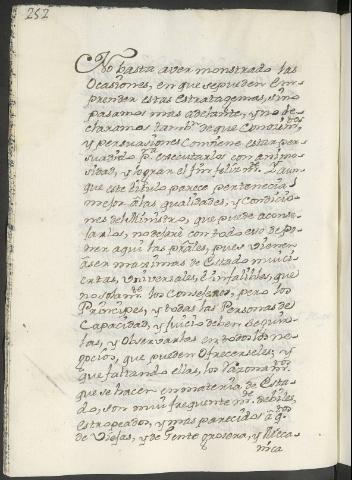 252
No basta aver monstrado las
Ocasiones, en que se pueden Em-
prender estas Estratagemas, sino
pasamos mas adelante, y no de-
claramos tambn. de que Conocim.tos
y persuasiones Combiene estar per-
suadido p.a executarlos con animo-
sidad, y lograr el fin feliz m.te Y aun-
que este titulo parece pertenecia
mejor a las qualidades, y Condicio-
nes del Ministro, que puede aconse-
jarlos, no dejaré con todo eso de Po-
ner aqui las prales, pues vienen
a ser maximas de Estado mui ci-
ertas, Universales, é infalibles, que
no solam.te los Consejeros, pero los
Principes, y todas las Personas de
Capacidad, y Juicio deben seguir-
las, y Observarlas en todos los ne-
gocios, que pueden Ofrecerseles; y
que faltando ellas, los razonam.tos
que se hacen en materia de Esta-
do, son mui frequente m.te debiles,
estropeados, y mas parecidos á q.tos
de Viejas, y de Gente grosera, y Mecca-
nica